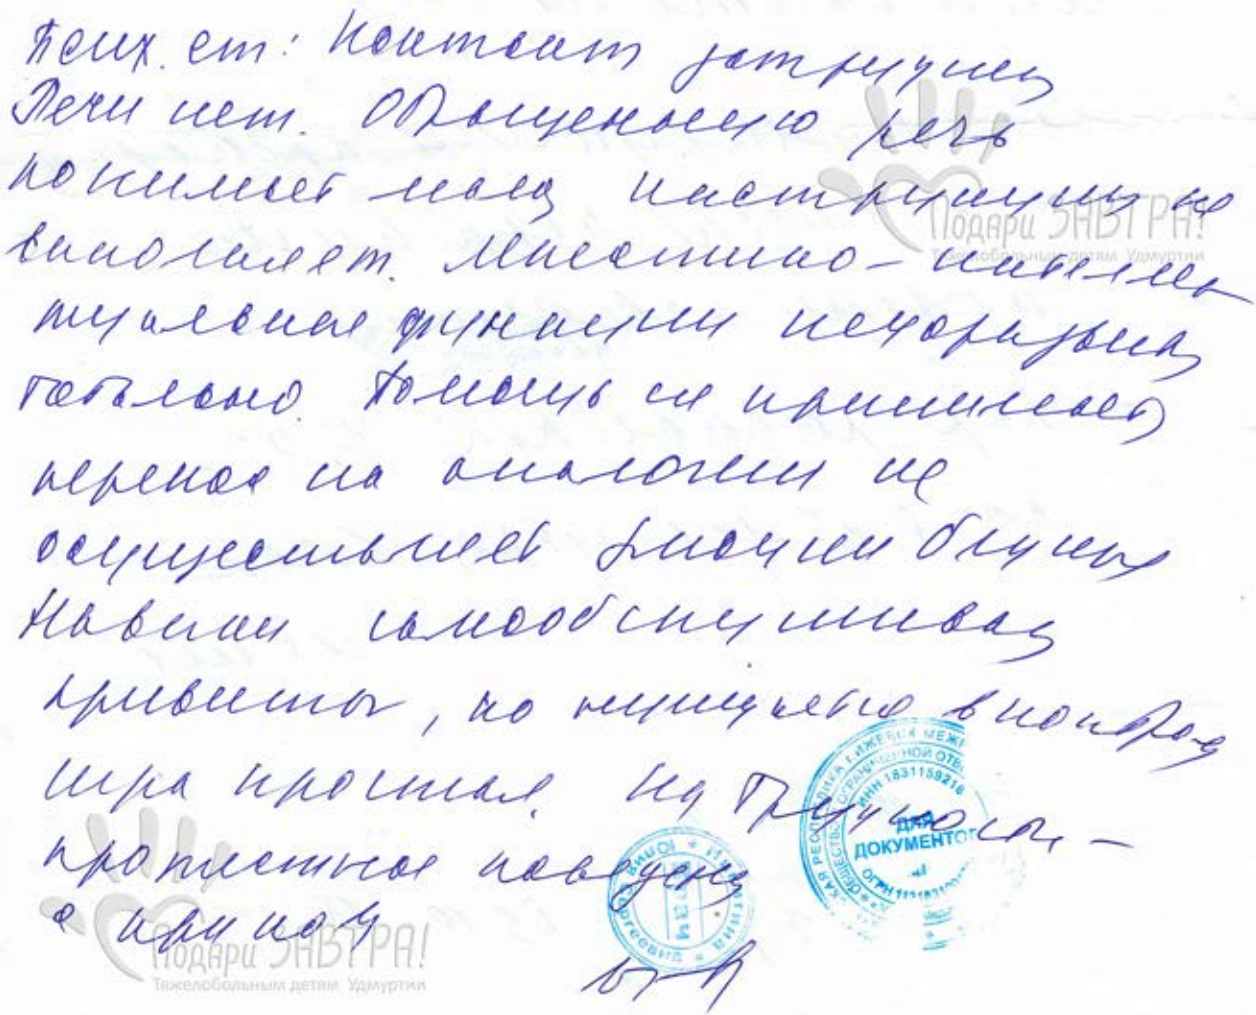 Псих. ст: Контакт затруднен
Речи нет. Обращенную речь
понимает мало, инструкции не
выполняет. Мнестико-интеллек
туальные функции недоразвиты
тотально. Помощь не принимает
перенос на аналогии не
осуществляет. Эмоции бедные
Навыки самообслуживан
привиты, но нуждается в контроле
Игра простая. На трудности -
протестное поведение
с криком
Подари ЗАВТРА!
Тяжелобольным детям Удмуртии
ДЛЯ
ДОКУМЕНТОВ
ИНН 1831159216
Подари ЗАВТРА!
Тяжелобольным детям Удмуртии